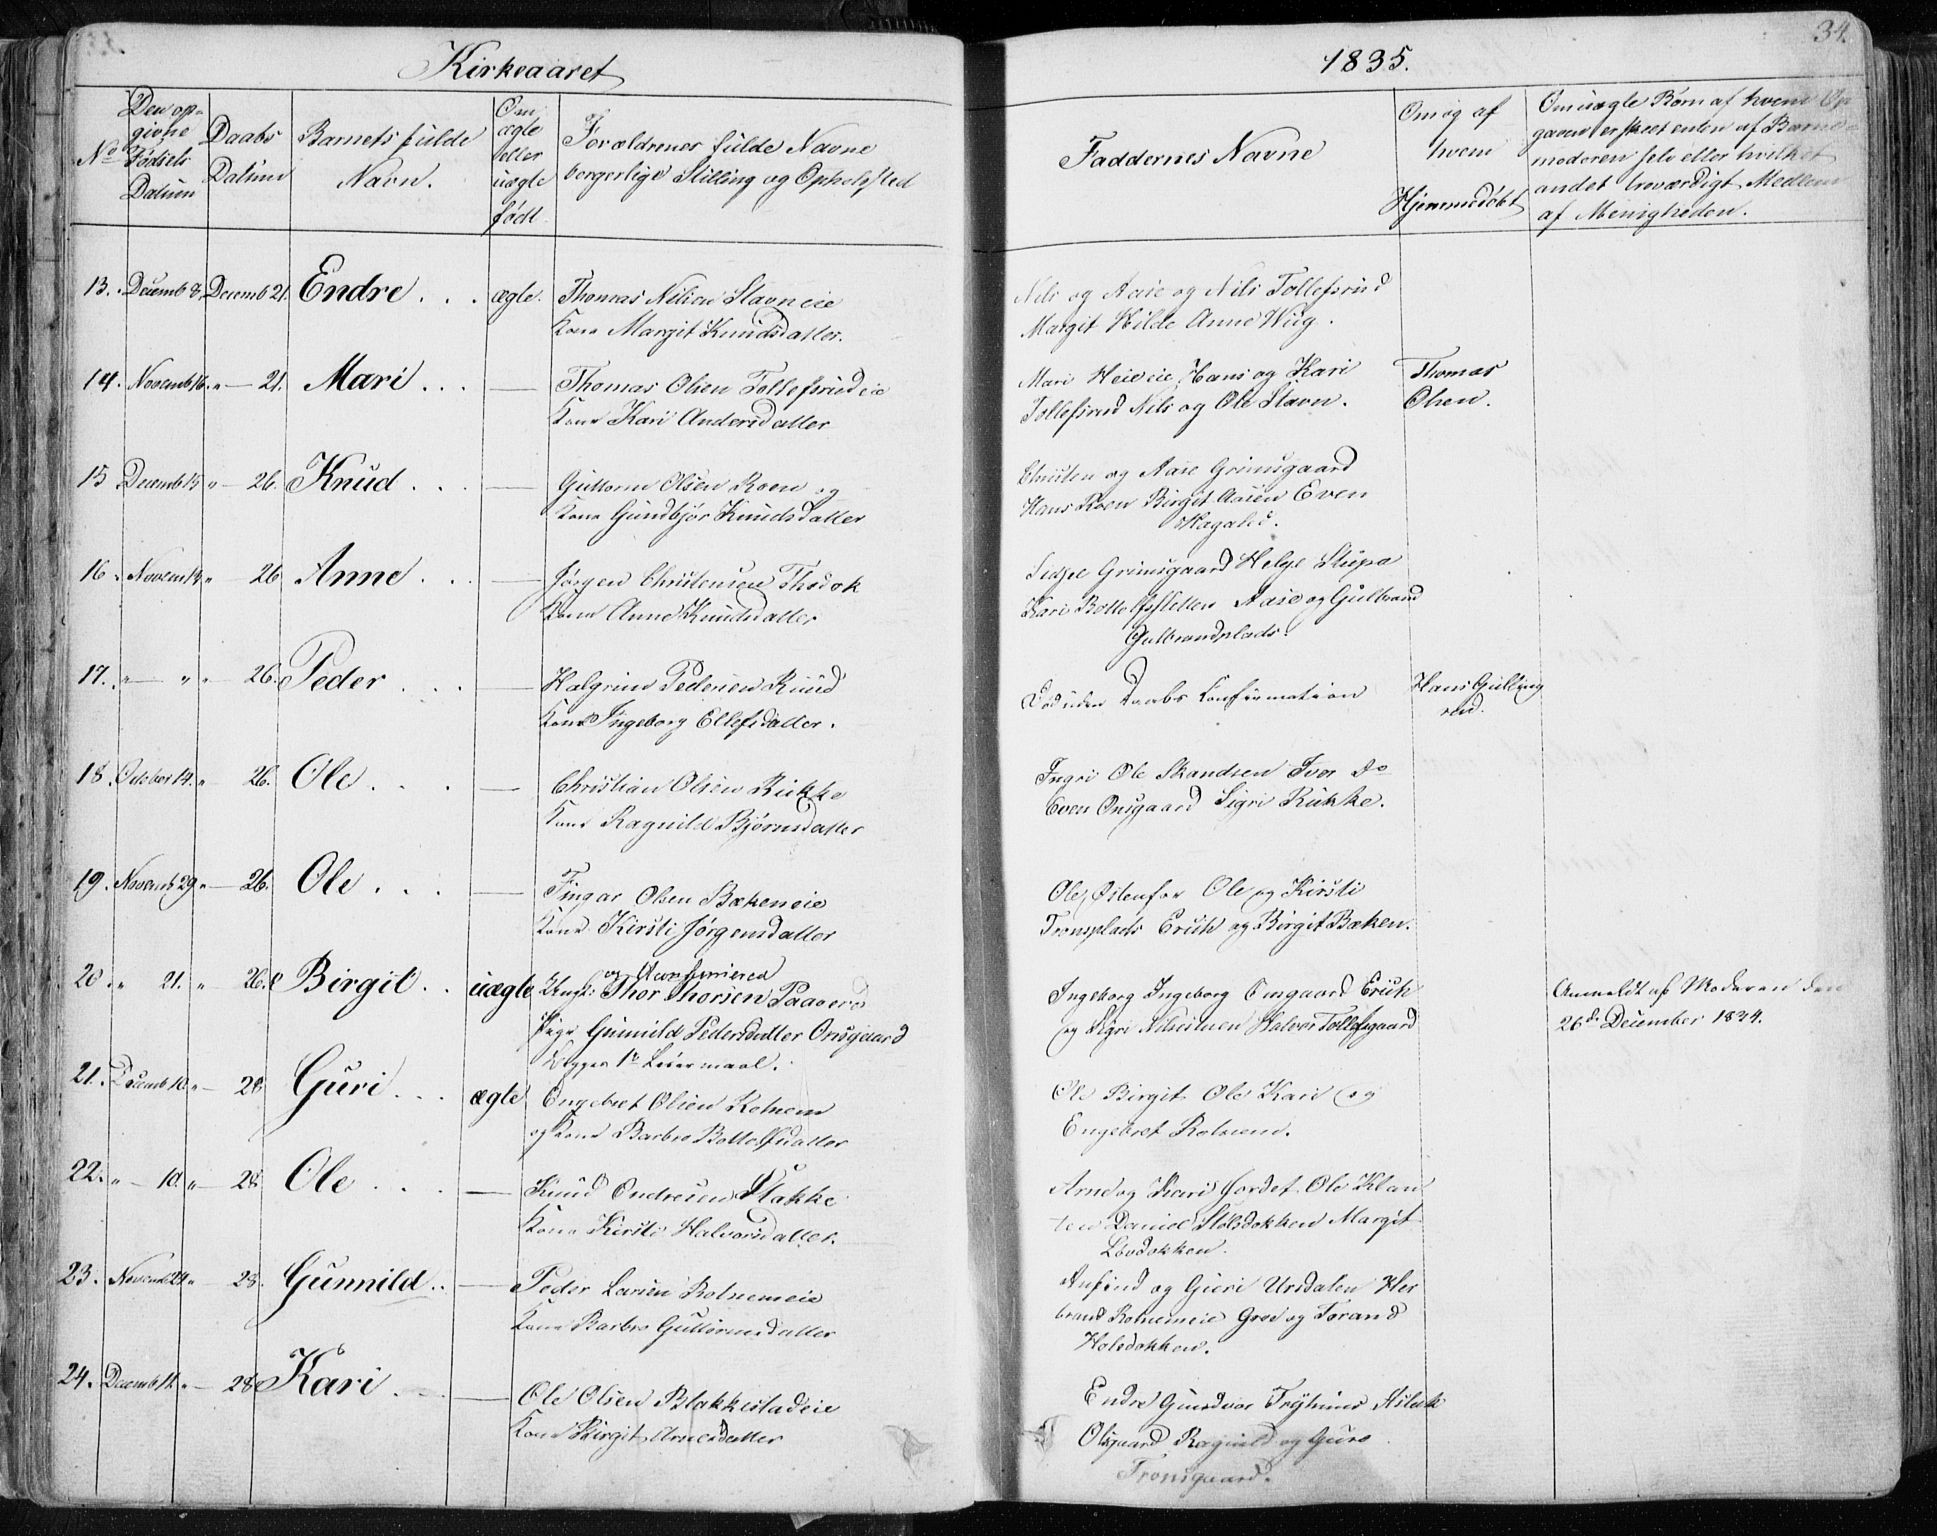 Kirkeaaret 1835.
34.
No
Den op-
givne
Fødsels
Datum
Daabs
Datum
Barnets fulde
Navn.
Om
ægte
eller
uægte
født.
Forældrenes fulde Navne
borgerlige Stilling og Opholdsted
Faddernes Navne
Om og af
hvem
Hjemmedøbt
Om uægte Børn af hvem Op
gaven er skeet enten af Barne-
moderen selv eller hvilket
andet troværdigt Medlem
af Menigheden.
13. Decemb 8. Decemb 21. Endre ... ægte. Thomas Nilsen Stavneie
Kone Margit Knudsdatter.
Nils og Aase og Nils Tollefsrud
Margit Hilde Anne Wiig.
14. Novemb 16. " — 21. Mari ... — Thomas Olsen Tollefsrudeie
Kone Kari Andersdatter
Mari Heieeie, Hans og Kari
Tollefsrud Nils og Ole Stavn.
Thomas
Olsen.
15 Decemb 15 " — 26. Knud ... — Guttorm Olsen Roen og
Kone Gundbjør Knudsdatter
Christen og Aase Grimsgaard
Hans Roen Birgit Aasen Even
16. Novem 14 " — 26 Anne ... — Jørgen Christensen Thodok
Kone Anne Knudsdatter
Sidsel Grimsgaard Helge Stupa
Kari Bottolfsletten Aase og Gulbrand
Gulbrandsplads.
17. " — " " — 26. Peder ... — Halgrim Pedersen Ruud
Kone Ingeborg Ellefsdatter.
Død uden Daabs Confirmation
Hans Gulling
rud.
18. October 14. " — 26. Ole ... — Christian Olsen Rukke
Kone Ragnild Bjørnsdatter
Ingri Ole Skandsen Iver Do
Even Onsgaard Sigri Rukke.
19. Novemb 29 " — 26. Ole ... — Fingar Olsen Bækeneie
Kone Kirsti Jørgensdatter
Ole Østenfor Ole og Kirsti
Tronsplads Erich og Birgit Bæken.
20. " 21. " 26. Birgit .. uægte Ungk: Thor Thorsen
Pige Gunnild Pedersdatter Onsgaard
Begges 1te Leiermaal.
Ingeborg Ingeborg Onsgaard Erich
og Sigri Halvor Tollefsgaard
Anmeldt af Moderen den
26de December 1834.
21. Decemb 10. " — 28 Guri ... ægte Engebret Olsen Rolnem
og Kone Barbro Bottolfsdatter
Ole Birgit Ole Kari og
Engebret Rolnem.
22. " — 10. " — 28 Ole ... — Knud Endresen Stakke
Kone Kirsti Halvorsdatter.
Arne og Kari Jordet Ole Klan
ten Daniel Stølsdokken Margit
Løvdokken.
23. Novemb 24 " — 28. Gunnild .. — Peder Larsen Rolnemeie
Kone Barbro Guttormsdatter
Anfind og Guri Ursdalen Her
brand Rolnemeie Groe og Torand
Holsdokken.
24. Decemb 11. " — 28 Kari ... — Ole Olsen Blakkestadeie
Kone Birgit Arnesdatter
Endre Gundvor Trythuus Aslak
Olsgaard Ragnild og Guro
Tronsgaard.